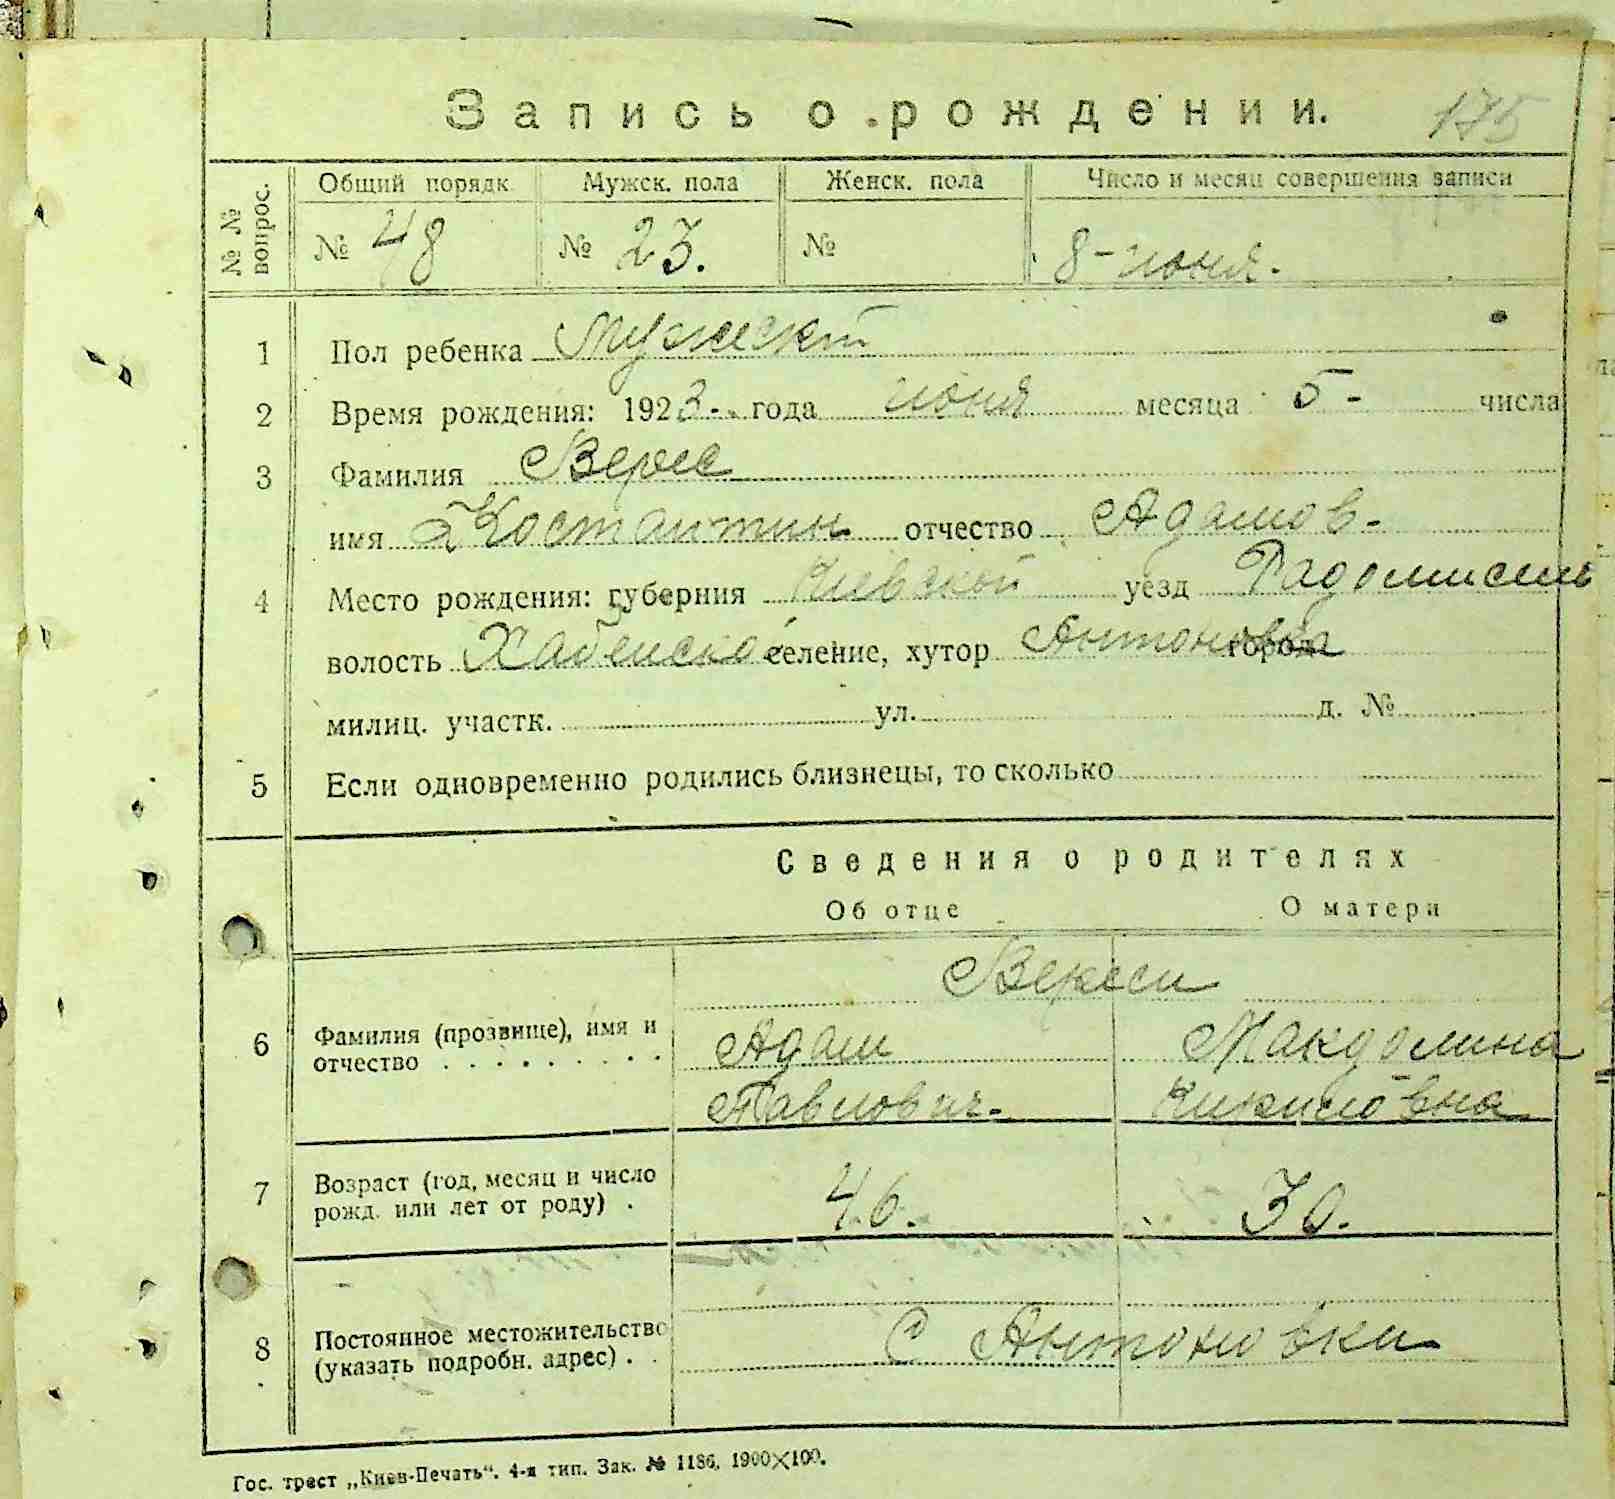 Запись о рождении. 175
№ № вопрос.
Общий порядк. Мужск. пола Женск. пола Число и месяц совершения записи
№ 48 № 23. № 8-июня.
1 Пол ребенка Мужескт
2 Время рождения: 1923. года июня месяца 5- числа
3 Фамилия Верес
имя Костантин отчество Адамов-
4 Место рождения: губерния Киевской уезд Радомисль
волость Хабенско селение, хутор Антоновка город
милиц. участк. ул. д. №
5 Если одновременно родились близнецы, то сколько
Сведения о родителях
Об отце О матери
Вереси
6 Фамилия (прозвище), имя и отчество Адам Макдолина
Павлович-
7 Возраст (год, месяц и число рожд. или лет от роду) . 46. 30.
8 Постоянное местожительство (указать подробн. адрес) . С Антоновки
Гос. трест „Киев-Печать“. 4-я тип. Зак. № 1186, 1900×100.